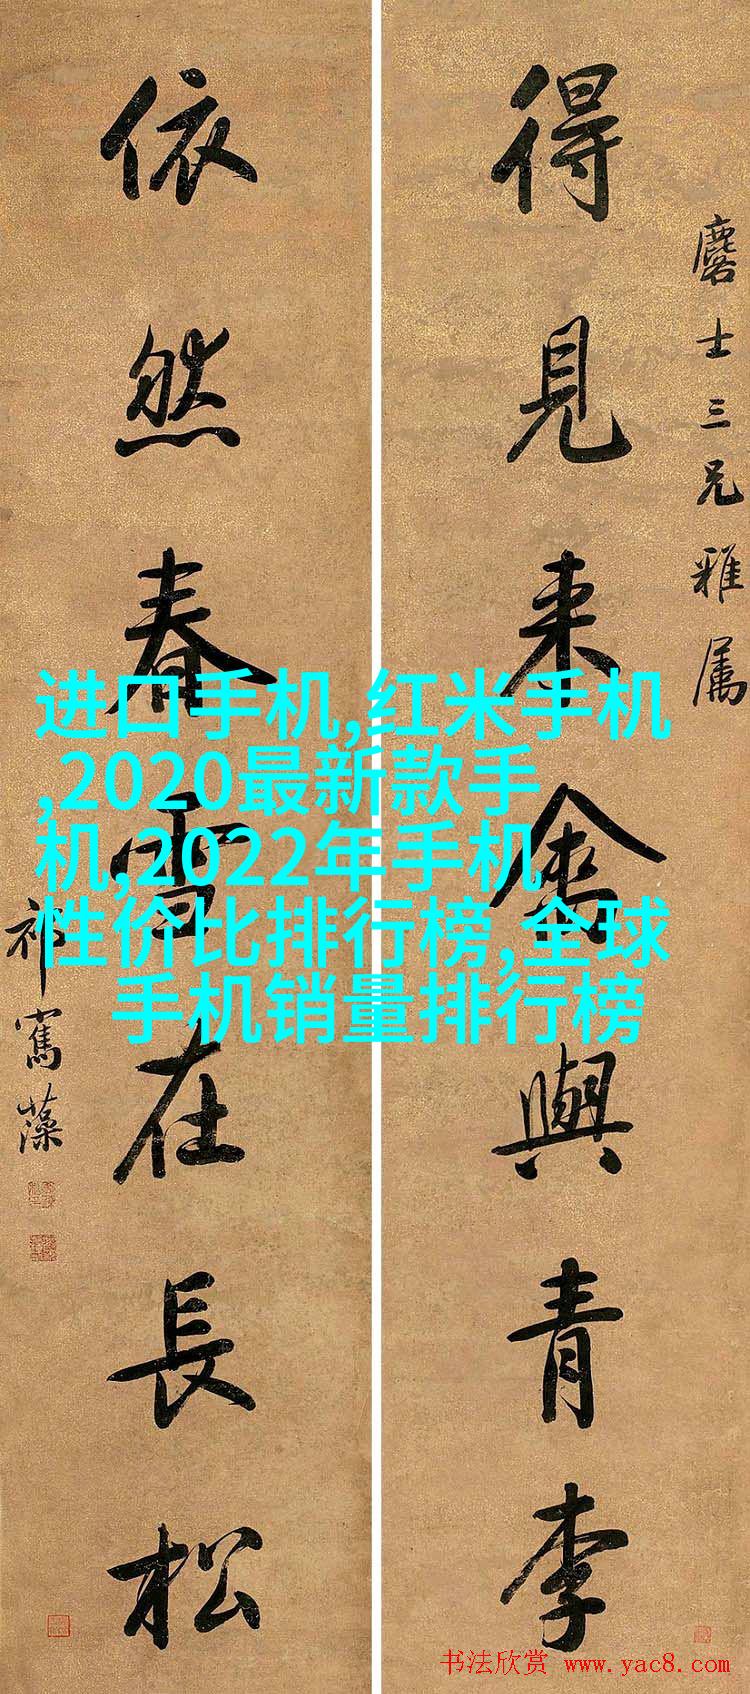 得見来禽與青李
麐士三兄雅屬
依然春雪在長松
祁寯藻
进口手机,红米手机
,2020最新款手
机,2022年手机
性价比排行榜,全球
手机销量排行榜
书法欣赏 www.yac8.com